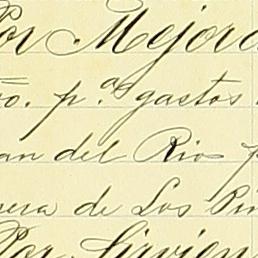 Por Mejora
ño. p.ª gastos
an del Rio p
nera de Los Pin
Por Sirvien